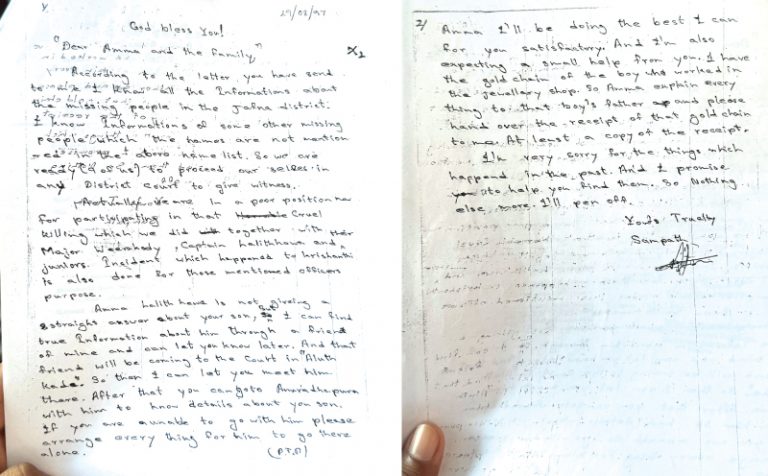 29/08/97
God bless You!
"Dear Amma and the family,"
According to the letter, you have send
to me I know all the Informations about
the missing people in the Jafna district.
I know Informations of some other missing
people which the names are not mention
red in the above name list. So we are
ready (2 of us) to proceed our selses in
any District court to give witness.
Actually we are in a poor position now
for participating in that Cruel
killing which we did together with their
Major Weerakody, Captain Lalithhewa and
juniors. Incident which happened to krishanthi
is also done for those mentioned officers
purpose.
Amma lalith hewa is not giveing a
straight answer about your son, But I can find
true Information about him through a friend
of mine and can let you know later. And that
friend will be coming to the Court in "Aluth
kade" So then I can let you meet him
there. After that you can goto Anuradhapura
with him to know details about you son.
If you are a unable to go with him please
arrange every thing for him to go there
alone. (P.T.O)
2/ Amma I'll be doing the best I can
for you satisfactory. And I'm also
expecting a small help from you. I have
the gold chain of the boy who worked in
the jewellary shop. So Amma explain every
thing to that boy's father and please
hand over the receipt of that gold chain
to me. At least a copy of the receipt.
I'm very sorry for the things which
happend in the past. And I promise
you to help you find them. So Nothing
else more. I'll pen off.
Yours Trually
Sampath